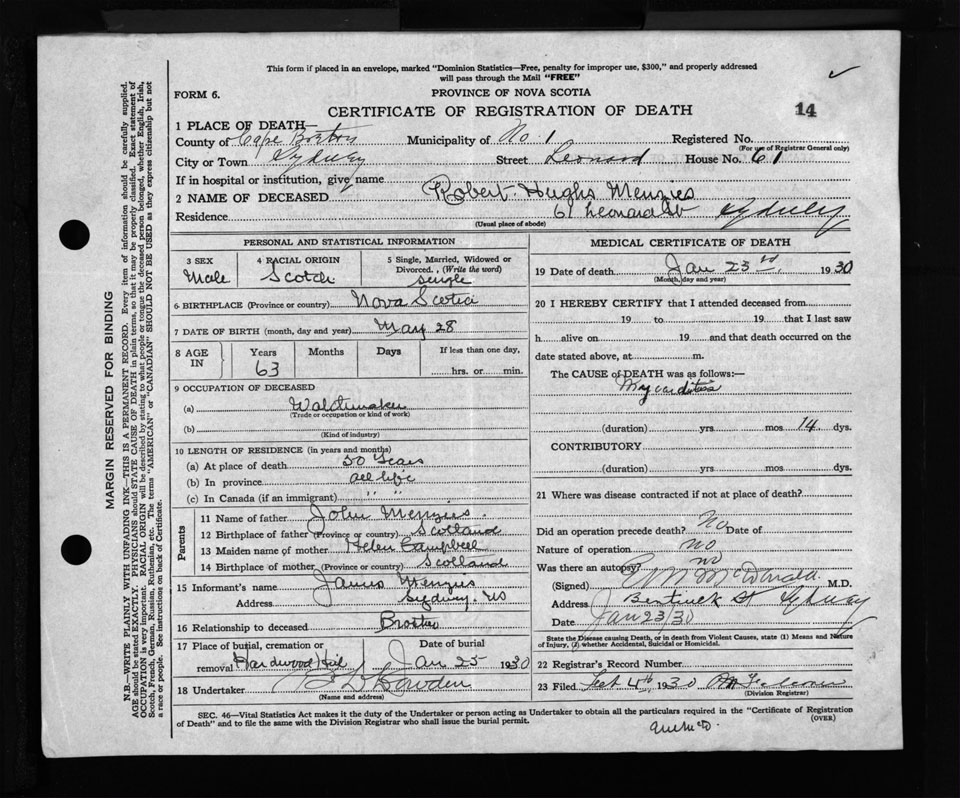 This form if placed in an envelope, marked "Dominion Statistics—Free, penalty for improper use, $300," and properly addressed
will pass through the Mail "FREE"
FORM 6.
PROVINCE OF NOVA SCOTIA
CERTIFICATE OF REGISTRATION OF DEATH
14
1 PLACE OF DEATH—
County of Cape Breton Municipality of No. 1 Registered No.
(For use of Registrar General only)
City or Town Sydney Street Leonard House No. 61
If in hospital or institution, give name
2 NAME OF DECEASED Robert Hughs Menzies
Residence 61 Leonard St Sydney
(Usual place of abode)
PERSONAL AND STATISTICAL INFORMATION
3 SEX Male
4 RACIAL ORIGIN Scotch
5 Single, Married, Widowed or Divorced. (Write the word) single
6 BIRTHPLACE (Province or country) Nova Scotia
7 DATE OF BIRTH (month, day and year) May 28
8 AGE IN Years Months Days If less than one day,
63 hrs. or min.
9 OCCUPATION OF DECEASED
(a)
(Trade or occupation or kind of work)
(b)
(Kind of industry)
10 LENGTH OF RESIDENCE (in years and months)
(a) At place of death 50 Years
(b) In province all life
(c) In Canada (if an immigrant) " " "
Parents
11 Name of father John Menzies
12 Birthplace of father (Province or country) Scotland
13 Maiden name of mother Helen Campbell
14 Birthplace of mother (Province or country) Scotland
15 Informant's name James Menzies
Address Sydney. NS
16 Relationship to deceased Brother
17 Place of burial, cremation or removal Hardwood Hill Date of burial Jan 25 1930
18 Undertaker Howden
(Name and address)
MEDICAL CERTIFICATE OF DEATH
19 Date of death Jan 23rd, 1930
(Month, day and year)
20 I HEREBY CERTIFY that I attended deceased from
19 to 19 that I last saw
h alive on 19 and that death occurred on the
date stated above, at m.
The CAUSE of DEATH was as follows:—
Myocarditis
(duration) yrs mos 14 dys.
CONTRIBUTORY
(duration) yrs mos dys.
21 Where was disease contracted if not at place of death?
Did an operation precede death? No Date of
Nature of operation no
Was there an autopsy? no
(Signed) McDonald M.D.
Address Bentinck St Sydney
Date Jan 23/30
State the Disease causing Death, or in death from Violent Causes, state (1) Means and Nature
of Injury, (2) whether Accidental, Suicidal or Homicidal.
22 Registrar's Record Number
23 Filed Feb 4th, 1930
(Division Registrar)
SEC. 46—Vital Statistics Act makes it the duty of the Undertaker or person acting as Undertaker to obtain all the particulars required in the "Certificate of Registration
of Death" and to file the same with the Division Registrar who shall issue the burial permit.
(OVER)
MARGIN RESERVED FOR BINDING
N.B.—WRITE PLAINLY WITH UNFADING INK—THIS IS A PERMANENT RECORD. Every item of information should be carefully supplied.
AGE should be stated EXACTLY. PHYSICIANS should STATE CAUSE OF DEATH in plain terms, so that it may be properly classified. Exact statement of
OCCUPATION is very important. RACIAL ORIGIN will be described by stating to what people or tongue the deceased person belonged, whether English, Irish,
Scotch, French, German, Russian, Ruthenian, etc. The terms "AMERICAN" or "CANADIAN" SHOULD NOT BE USED as they express citizenship but not
a race or people. See instructions on back of Certificate.